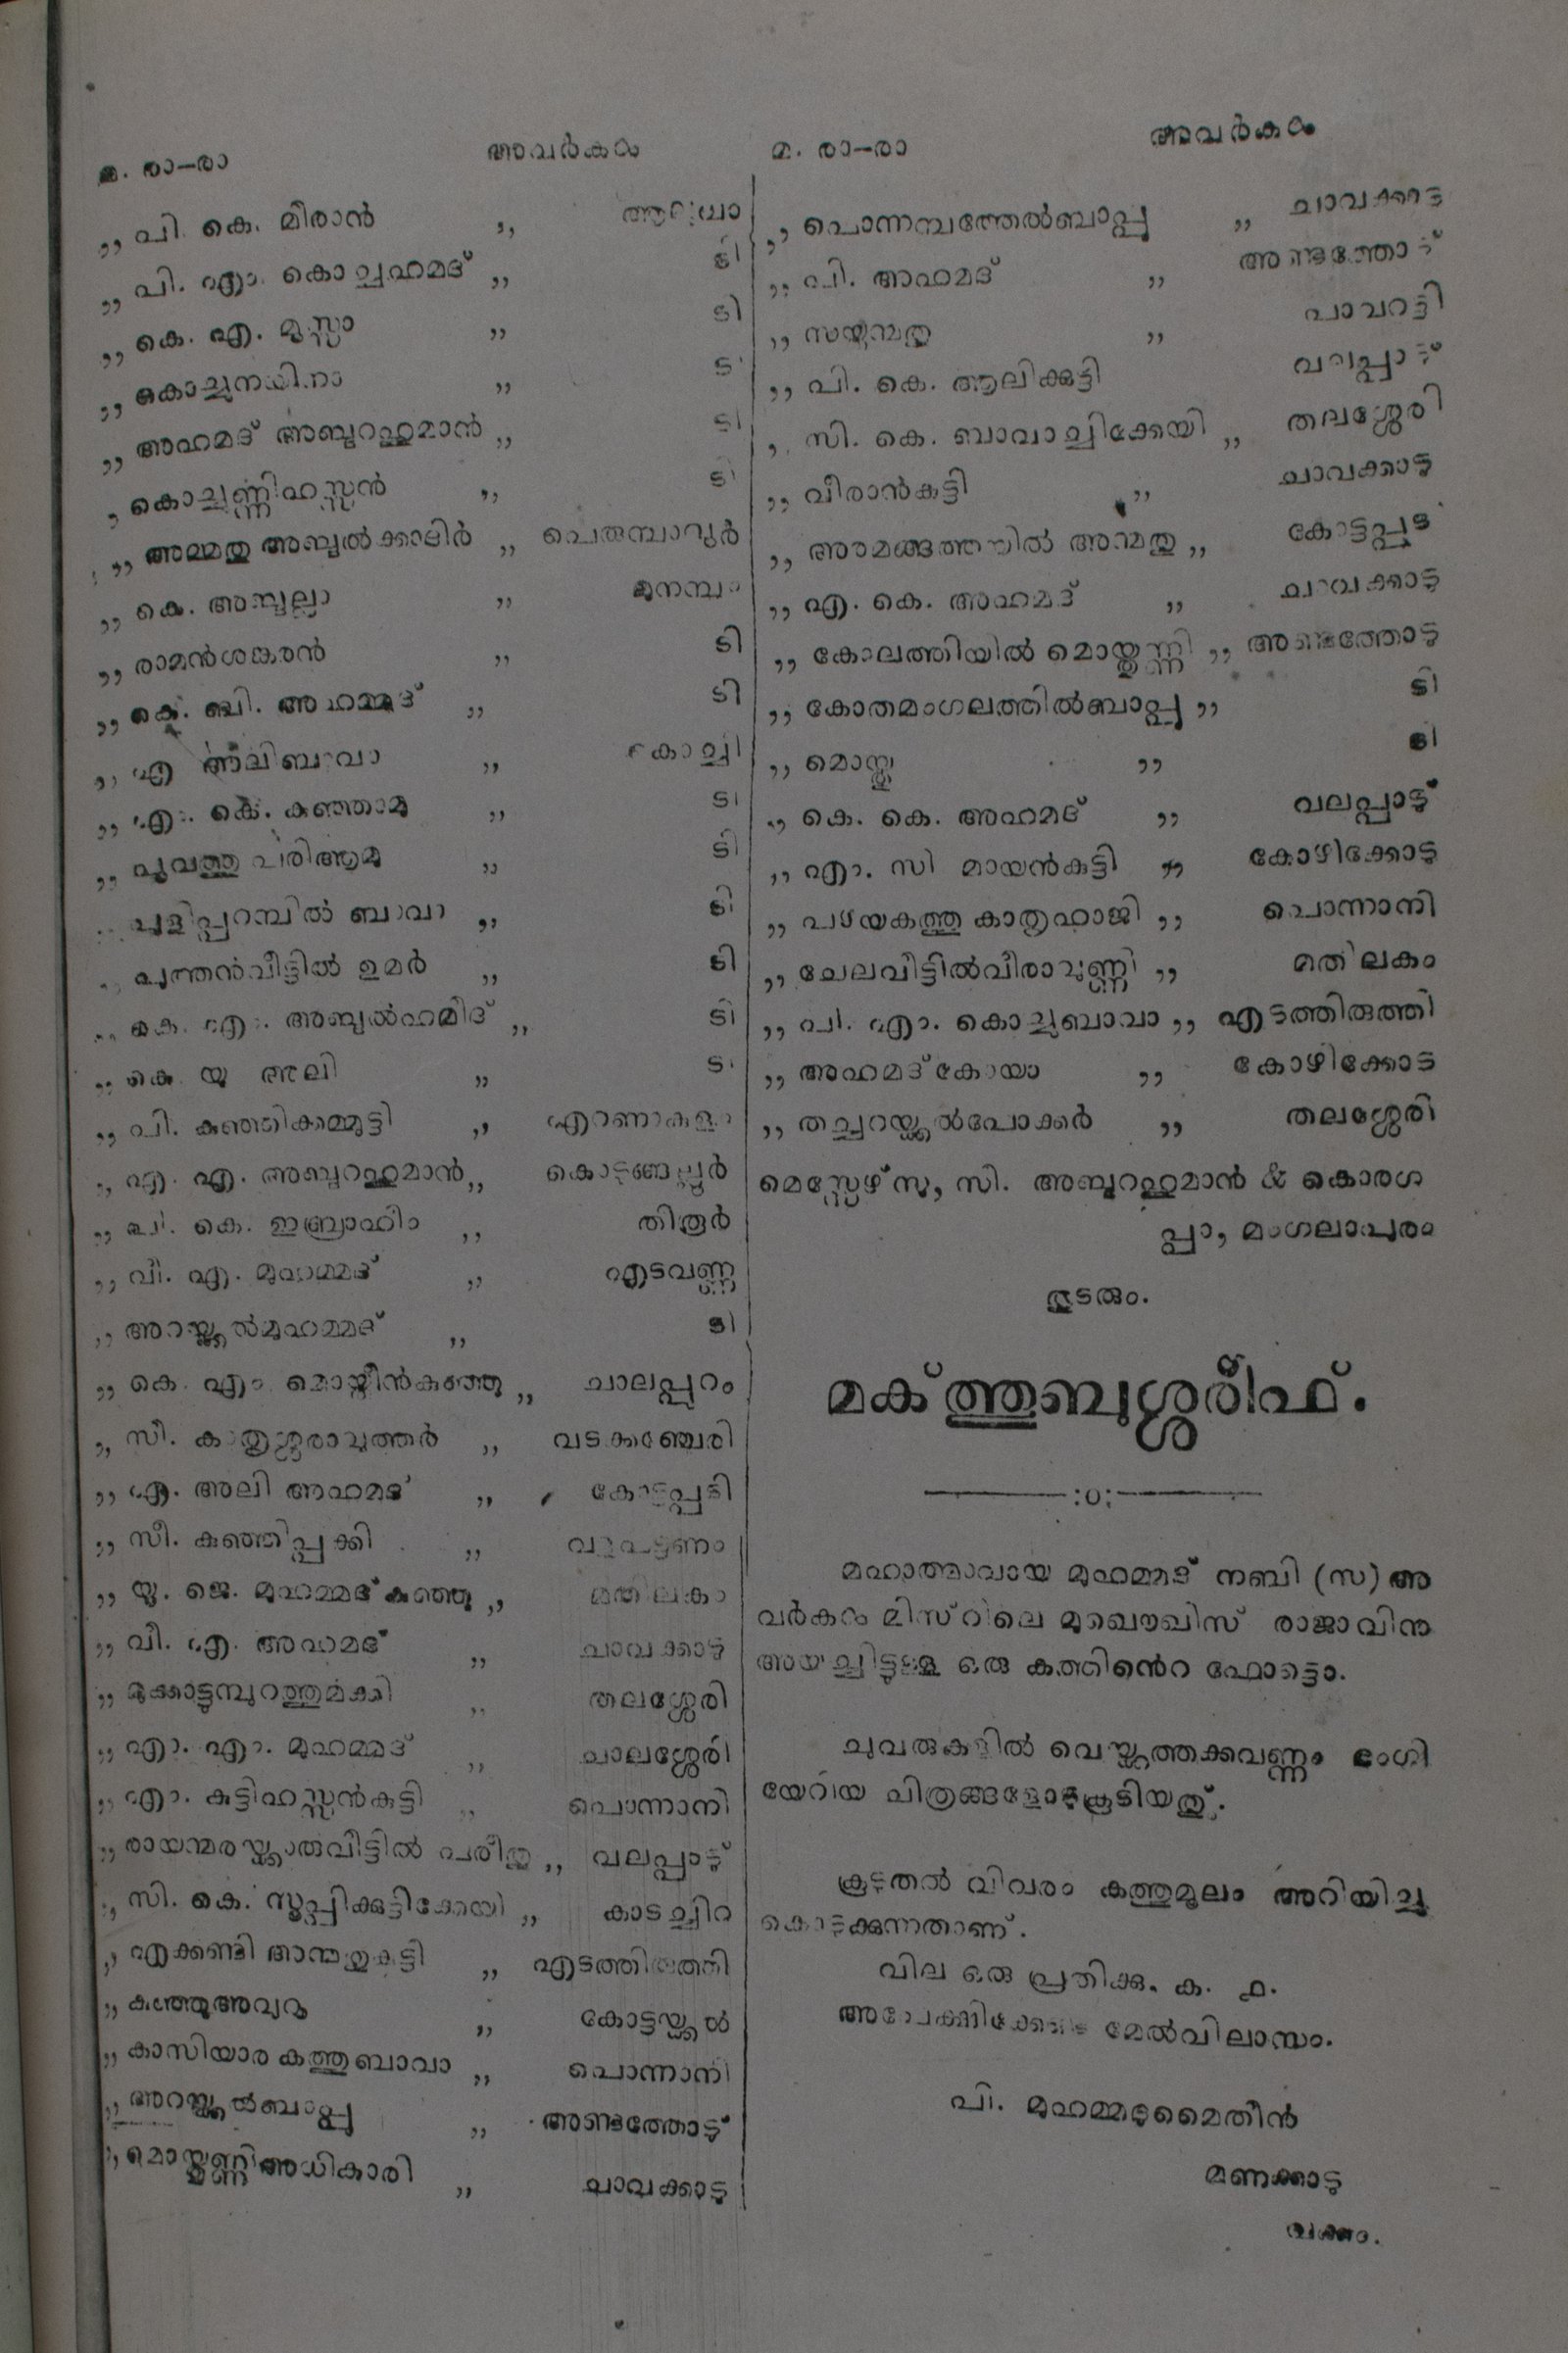 മ. രാ–രാ അവർകൾ
,, പി. കെ. മീരാൻ ,, ആലുവാ
,, പി. എം. കൊച്ചഹമദ് ,, ടി
,, കെ. എ. മൂസ്സാ ,, ടി
,, കൊച്ചുനയിനാ ,, ടി
,, അഹമദ് അബ്ദുറഹുമാൻ ,, ടി
, കൊച്ചുണ്ണിഹസ്സൻ ,, ടി
,, അഹമതു അബ്ദുൽക്കാദിർ ,, പെരുമ്പാവൂർ
,, കെ. അബ്ദുല്ലാ ,, മുനമ്പം
,, രാമൻശങ്കരൻ ,, ടി
,, കെ. ബി. അഹമ്മദ് ,, ടി
,, എ അലിബാവാ ,, കൊച്ചി
,, എം. കെ. കുഞ്ഞാമു ,, ടി
,, പൂവത്തു പരിആമു ,, ടി
,, പുളിപ്പറമ്പിൽ ബാവാ ,, ടി
,, പുത്തൻവീട്ടിൽ ഉമർ ,, ടി
,, കെ. എം. അബ്ദുൽഹമീദ് ,, ടി
,, കെ. യു അലി ,, ടി
,, പി. കുഞ്ഞിക്കമ്മുട്ടി ,, എറണാകുളം
,, എ. എ. അബ്ദുറഹുമാൻ ,, കൊടുങ്ങല്ലൂർ
,, പി. കെ. ഇബ്രാഹീം ,, തിരൂർ
,, വി. എ. മുഹമ്മദ് ,, എടവണ്ണ
,, അറയ്ക്കൽമുഹമ്മദ് ,, ടി
,, കെ. എം മൊയ്തീൻകുഞ്ഞു ,, ചാലപ്പുറം
,, സി. കാതൃശ്ശരാവുത്തർ ,, വടക്കഞ്ചേരി
,, എ. അലി അഹമദ് ,, കോട്ടപ്പടി
,, സീ. കുഞ്ഞിപ്പക്കി ,, വളപട്ടണം
,, യു. ജെ. മുഹമ്മദ്കുഞ്ഞു ,, മതിലകം
,, വി. എ. അഹമദ് ,, ചാവക്കാടു
,, മുക്കാട്ടുമ്പുറത്തുമക്കി ,, തലശ്ശേരി
,, എം. എം. മുഹമ്മദ് ,, ചാലശ്ശേരി
,, എം. കുട്ടിഹസ്സൻകുട്ടി ,, പൊന്നാനി
,, രായമ്മരയ്ക്കാരുവീട്ടിൽ പരീതു ,, വലപ്പാടു്
,, സി. കെ. സൂപ്പിക്കുട്ടിക്കേയി ,, കാടച്ചിറ
,, എക്കണ്ടി അഹമ്മതുകുട്ടി ,, എടത്തിരുത്തി
,, കുഞ്ഞുഅവറു ,, കോട്ടയ്ക്കൽ
,, കാസിയാരകത്തുബാവാ ,, പൊന്നാനി
,, അറയ്ക്കൽബാപ്പു ,, അണ്ടത്തോടു്
,, മൊയ്തുണ്ണിഅധികാരി ,, ചാവക്കാടു
മ. രാ–രാ അവർകൾ
,, പൊന്നമ്പത്തേൽബാപ്പു ,, ചാവക്കാടു
,, പി. അഹമദ് ,, അണ്ടത്തോട്
,, സയ്തുമ്പതു ,, പാവറട്ടി
,, പി. കെ. ആലിക്കുട്ടി വലപ്പാട്
,, സി. കെ. ബാവാച്ചിക്കേയി ,, തലശ്ശേരി
,, വീരാൻകുട്ടി ,, ചാവക്കാടു
,, അരമങ്ങത്തയിൽ അഹമതു ,, കോട്ടപ്പടി
,, എ. കെ. അഹമദ് ,, ചാവക്കാടു
,, കോലത്തിയിൽ മൊയ്തുണ്ണി ,, അണ്ടത്തോടു
,, കോതമംഗലത്തിൽബാപ്പു ,, ടി
,, മൊയ്തു ,, ടി
,, കെ. കെ. അഹമദ് ,, വലപ്പാടു്
,, എം. സി മായൻകുട്ടി ,, കോഴിക്കോടു
,, പഴയകത്തു കാതൃഹാജി ,, പൊന്നാനി
,, ചേലവീട്ടിൽവീരാവുണ്ണി ,, മതിലകം
,, പി. എം. കൊച്ചുബാവാ ,, എടത്തിരുത്തി
,, അഹമദ്കോയാ ,, കോഴിക്കോട
,, തച്ചറയ്ക്കൽപോക്കർ ,, തലശ്ശേരി
മെസ്സേഴ്സു, സി. അബ്ദുറഹുമാൻ & കൊരഗ
പ്പാ, മംഗലാപുരം
തുടരും.
മക്ത്തൂബുശ്ശരീഫ്.
——:o:——
മഹാത്മാവായ മുഹമ്മദ് നബി (സ) അ
വർകൾ മിസ്റിലെ മുഖൌഖിസ് രാജാവിനു
അയച്ചിട്ടുള്ള ഒരു കത്തിൻെറ ഫോട്ടൊ.
ചുവരുകളിൽ വെയ്ക്കത്തക്കവണ്ണം ഭംഗി
യേറിയ ചിത്രങ്ങളോടുകൂടിയതു്.
കൂടുതൽ വിവരം കത്തുമൂലം അറിയിച്ചു
കൊടുക്കുന്നതാണ്.
വില ഒരു പ്രതിക്കു. ക. ഫ.
അപേക്ഷിക്കേണ്ട മേൽവിലാസം.
പി. മുഹമ്മദുമൈതീൻ
മണക്കാടു
വക്കം.